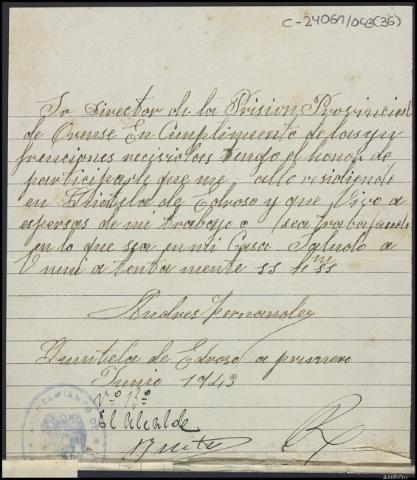 C-24067/043(36)
Sr Director de la Prision Provincial
de Orense En Cumplimiento de las yn
frenciones recisiolas tengo el honor de
participarle que me allo residiendo
en de Edroso y que Vivo a
espersas de mi trabajo o sea trabajando
en lo que sea en mi Casa Saludo a
V muí atenta mente ss
Andres Fernandez
de Edroso a primero
Junio 1943
Vº Bº
El Alcalde